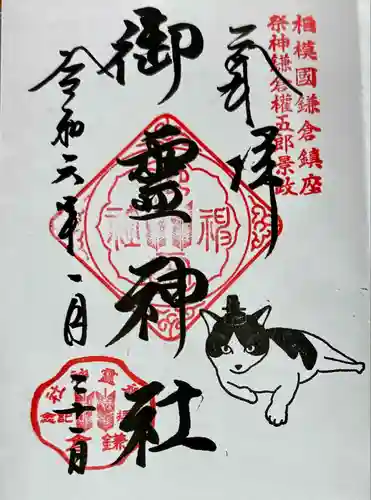 相模國鎌倉鎮座
祭神鎌倉權五郎景政
奉拝
御霊神社
令和六年一月三十一日